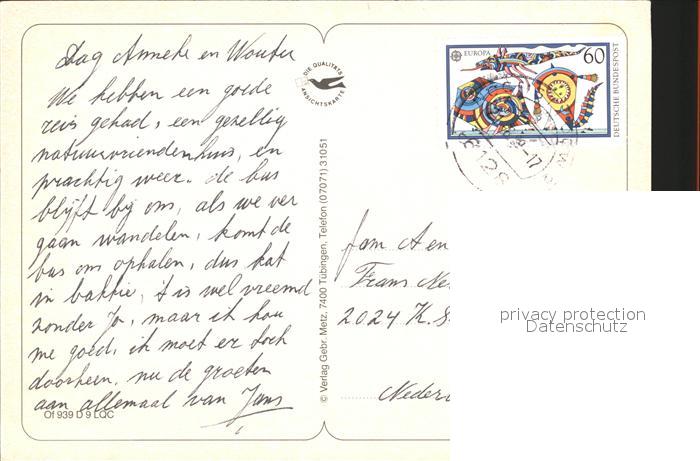 Dag Anneke en Wouter
We hebben een goede
reis gehad, een gezellig
natuurvriendenhuis, en
prachtig weer. de bus
blijft bij ons, als we ver
gaan wandelen, komt de
bus ons ophalen, dus kat
in bakkie, 't is wel vreemd
zonder Jo, maar ik hou
me goed, ik moet er toch
doorheen. nu de groeten
aan allemaal van Jans
Of 939 D 9 LQC
DIE QUALITÄTS
ANSICHTSKARTE
© Verlag Gebr. Metz, 7400 Tübingen, Telefon (07071) 31051
EUROPA 60
DEUTSCHE BUNDESPOST
fam A en
Frans
2024 K.
Neder
privacy protection
Datenschutz